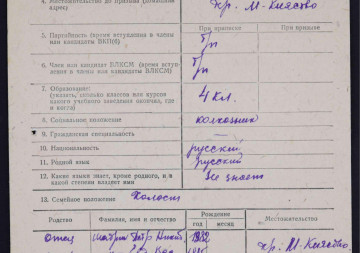 адрес)
хр. М-Княство
5. Партийность (время вступления в члены или кандидаты ВКП(б)
При приписке
При призыве
б/п
6. Член или кандидат ВЛКСМ (время вступления в члены или кандидаты ВЛКСМ)
б/п
7. Образование:
(указать, сколько классов или курсов какого учебного заведения окончил, где и когда)
4 кл.
8. Социальное положение
колхозник
9. Гражданская специальность
10. Национальность
русский
11. Родной язык
русский
12. Какие языки знает, кроме родного, и в какой степени владеет ими
не знает
13. Семейное положение
Холост
Родство
Фамилия, имя и отчество
Рождение
год
месяц
Местожительство
отец
хр. М-Княство